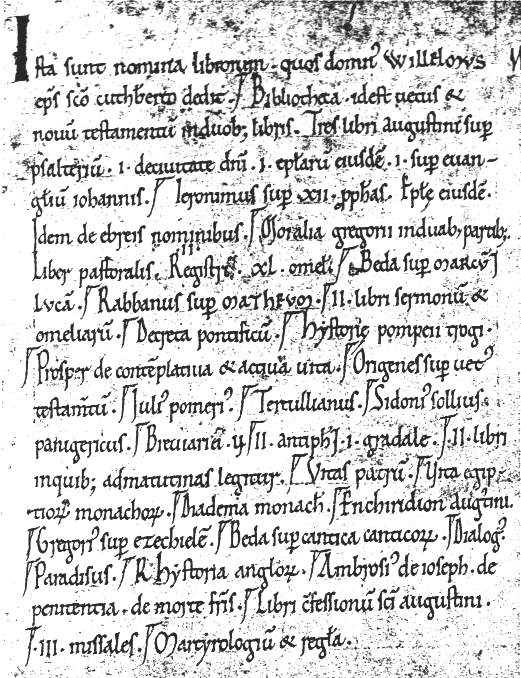 Ista sunt nomina librorum. quos domnꝰ Willelmus
ep̅s sc̅o cuthberto dedit. Bibliotheca. idest uetus &
nouū testamentū induob; libris. Tres libri augustini sup
psalteriū. I. deciuitate dn̅i. I. ep̅larū eiusdē. I. sup euan-
gl̅iū iohannis. Ieronimus sup. xii. pp̅has. Ep̅lę eiusdē.
Idem de ebreis nominibus. Moralia gregorii induab; partib;.
Liber pastoralis. Registrū. xl. omel̅. Beda sup marcū &
Lucā. Rabbanus sup matheum. II. libri sermonū &
omeliarū. Decreta pontificū. Hystorię pompeii trogi.
Prosper de contēplatiua & actiua uita. Origenes sup uetꝰ
testam̅tū. Iuliꝰ pomeriꝰ. Tertullianus. Sidoniꝰ sollius.
panigericus. Breuiariū. II. antiph̅. I. gradale. II. libri
inquib; admatutinas legitur. Vitas patrū. Vita egip-
tiorꝝ monachorꝝ. Diadema monach̅. Enchiridion aug̅tini.
Gregoriꝰ sup ezechielē. Beda sup cantica canticorꝝ. Dialogꝰ.
Paradisus. Hystoria anglorꝝ. Ambrosiꝰ de ioseph. de
penitentia. de morte fr̅is. Libri c̅fessionū sc̅i augustini.
III. missales. Martyrologiū & regl̅a.